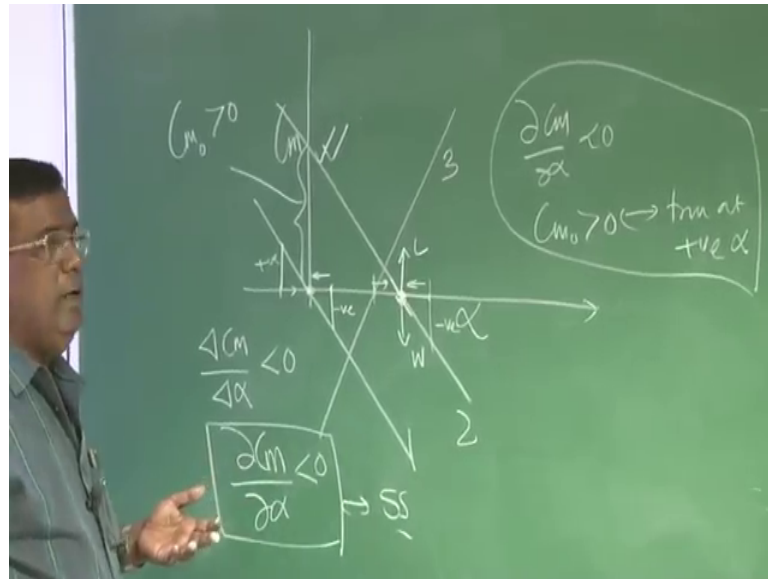 Cm₀>0
Cm
3
∂Cm/∂α <0
Cm₀>0 ↔ trim at
+ve α
+ve
-ve
L
-ve
α
W
ΔCm/Δα <0
1
2
∂Cm/∂α <0 → SS